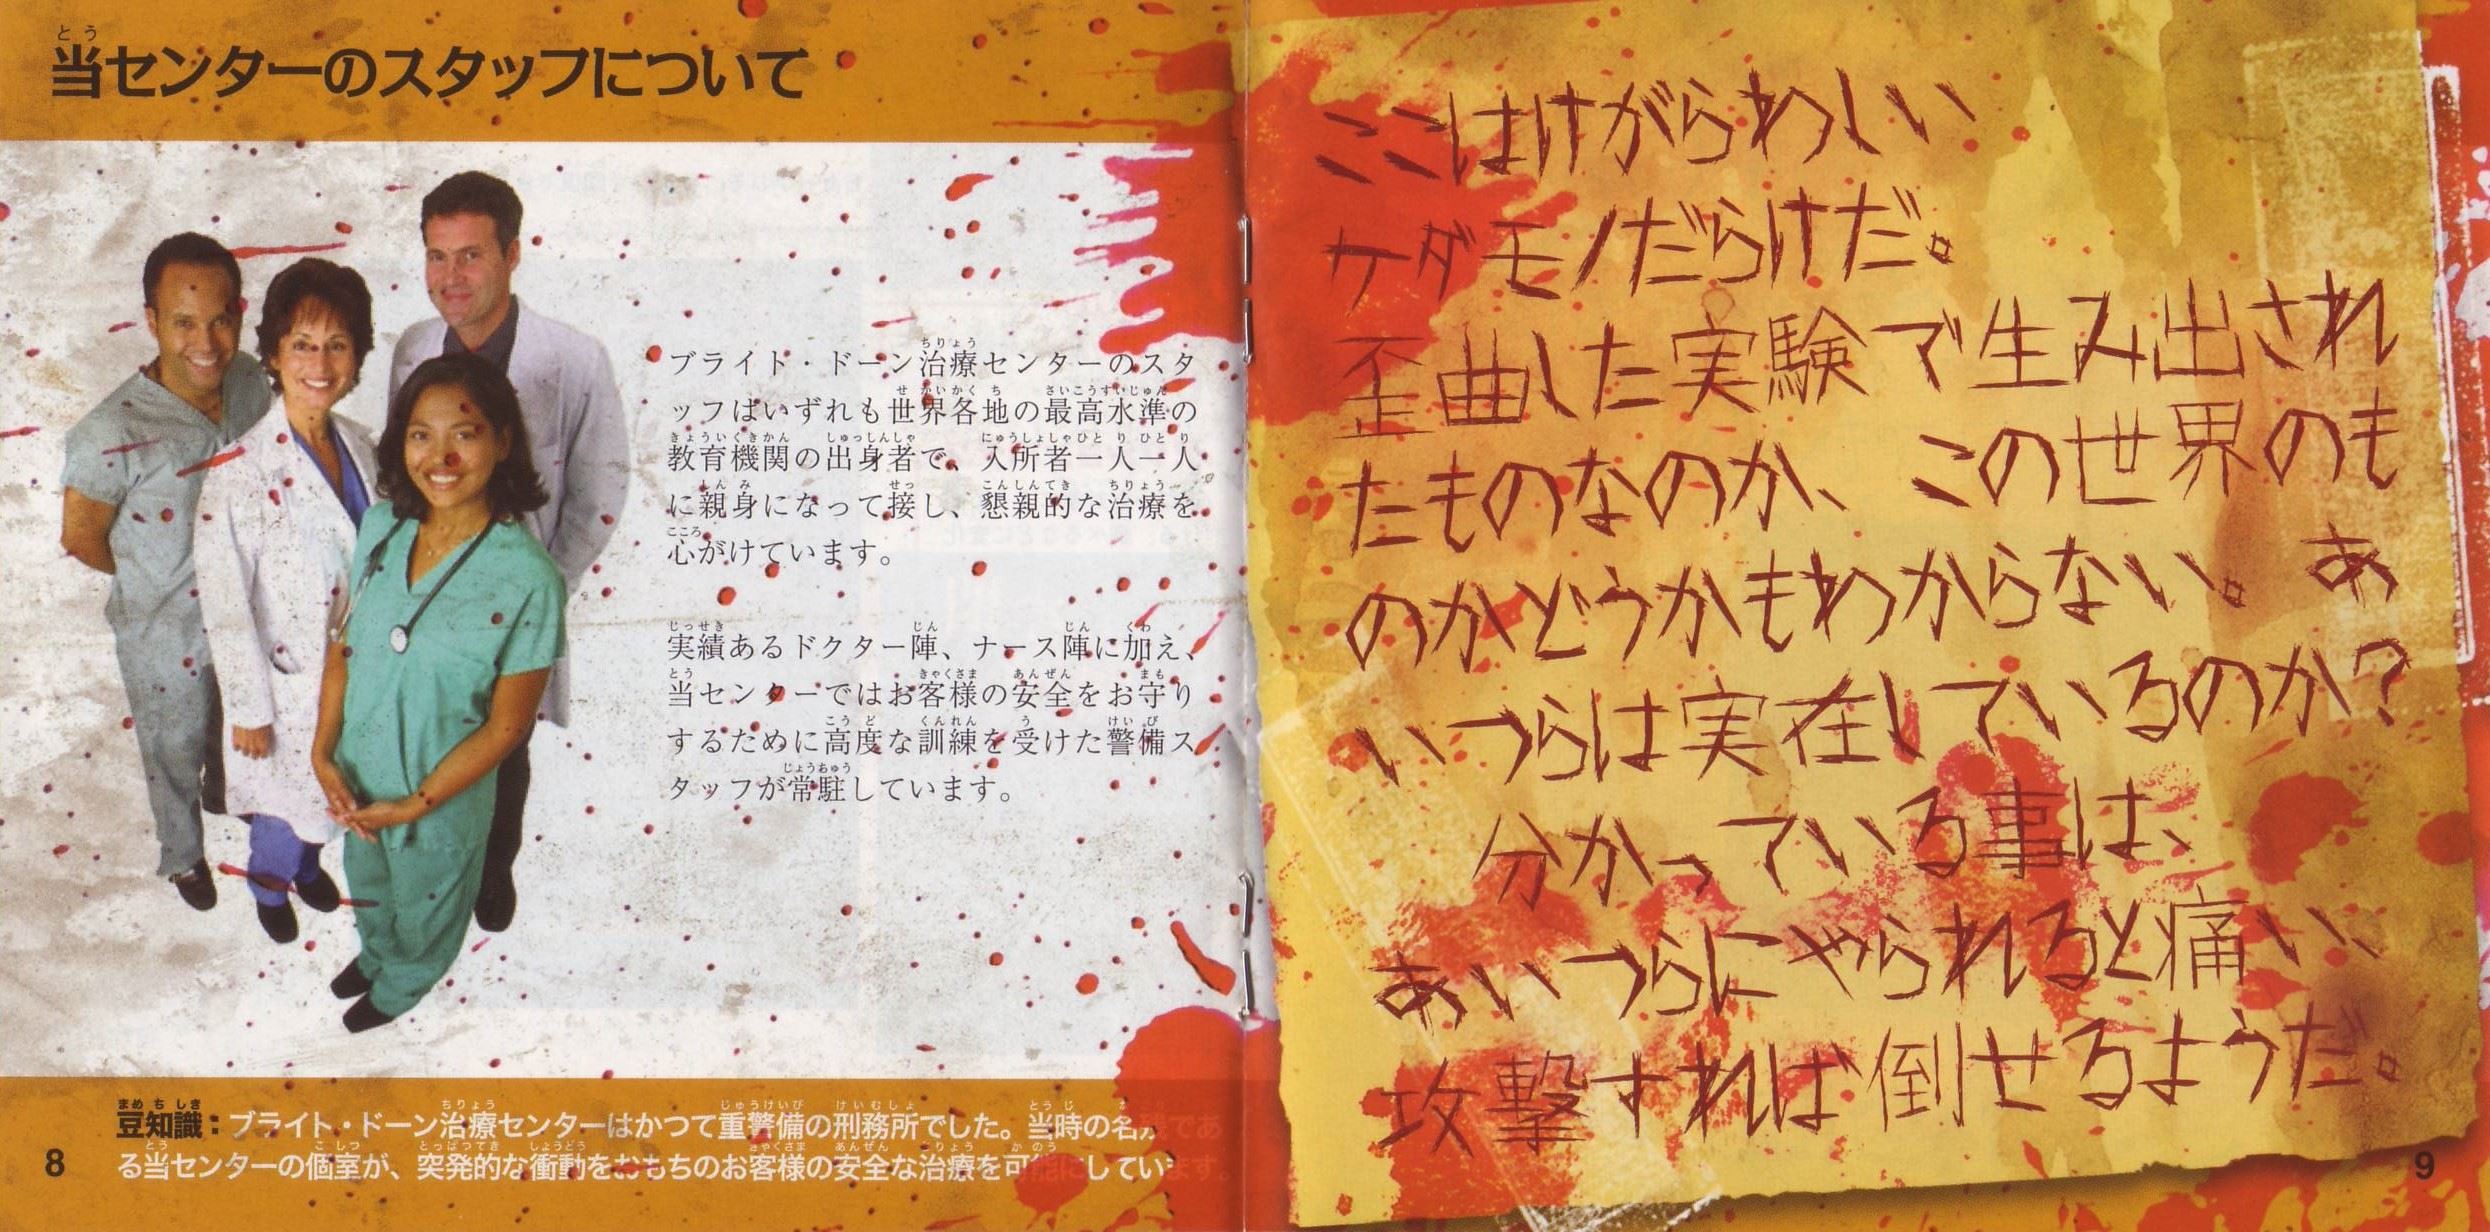 当センターのスタッフについて
ブライト・ドーン治療センターのスタ
ッフはいずれも世界各地の最高水準の
教育機関の出身者で、入所者一人一人
に親身になって接し、懇親的な治療を
心がけています。
実績あるドクター陣、ナース陣に加え、
当センターではお客様の安全をお守り
するために高度な訓練を受けた警備ス
タッフが常駐しています。
豆知識：ブライト・ドーン治療センターはかつて重警備の刑務所でした。当時の名残であ
る当センターの個室が、突発的な衝動をおもちのお客様の安全な治療を可能にしています。
8
ここはけがらわしい
ケダモノだらけだ。
歪曲した実験で生み出され
たものなのか、この世界のも
のかどうかもわからない。あ
いつらは実在しているのか？
分かっている事は、
あいつらにやられると痛い、
攻撃すれば倒せるようだ。
9